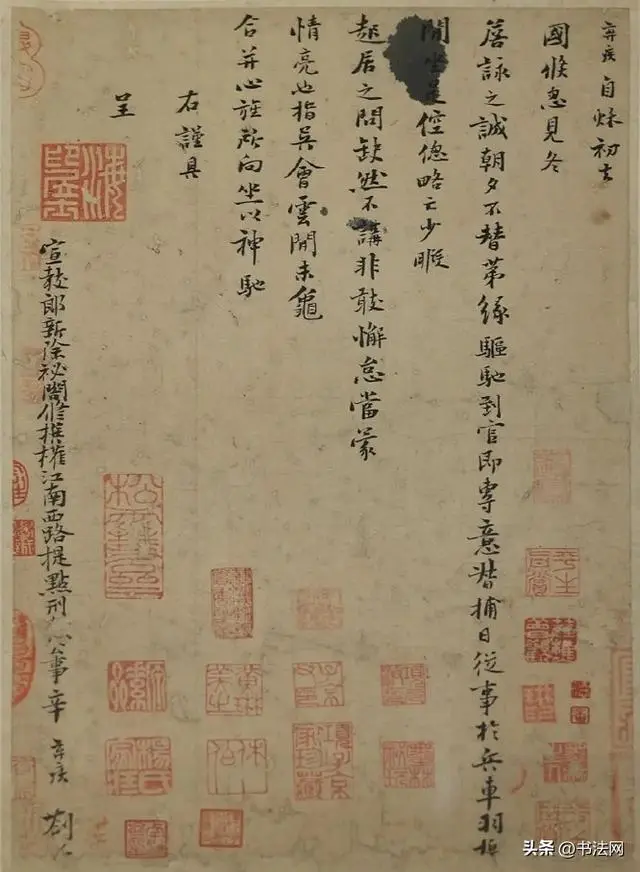 弃疾自秋初去
國倐忽見冬
詹詠之誠朝夕不替第緣驅馳到官即專意督捕日從事於兵車羽檄
間坐是倥偬略亡少暇
起居之問缺然不講非敢懈怠當蒙
情亮也指吳會雲間未龜
合并心旌所向坐以神馳
右謹具
呈
宣教郎新除祕閣修撰權江南西路提點刑獄公事辛弃疾劄子
項子京家珍藏
头条 @书法网